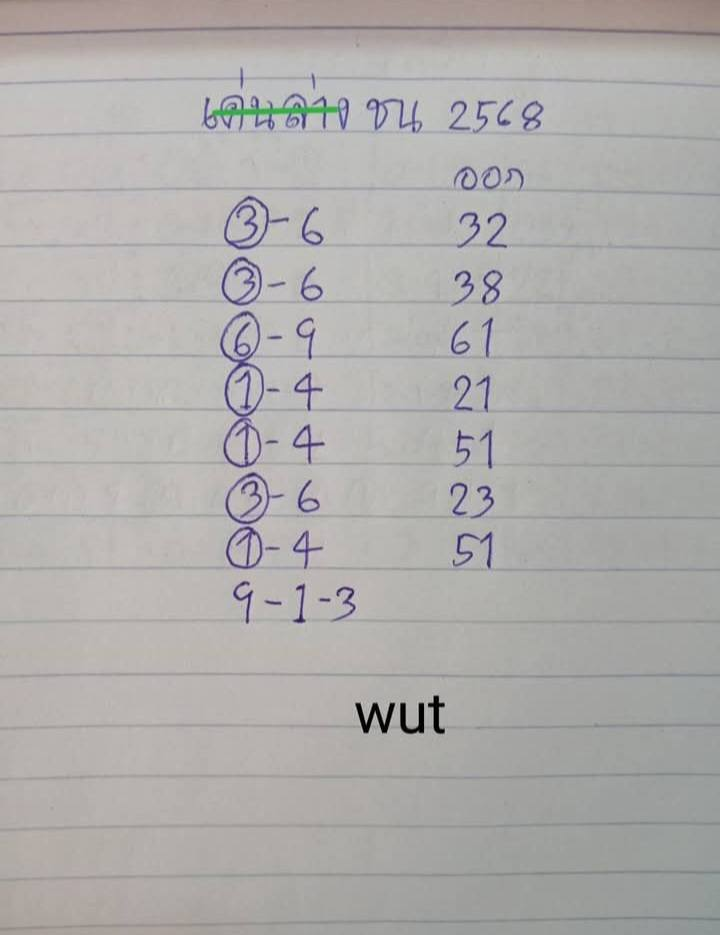 เด่นล่าง ชน 2568
ออก
3-6 32
3-6 38
6-9 61
1-4 21
1-4 51
3-6 23
1-4 51
9-1-3
wut